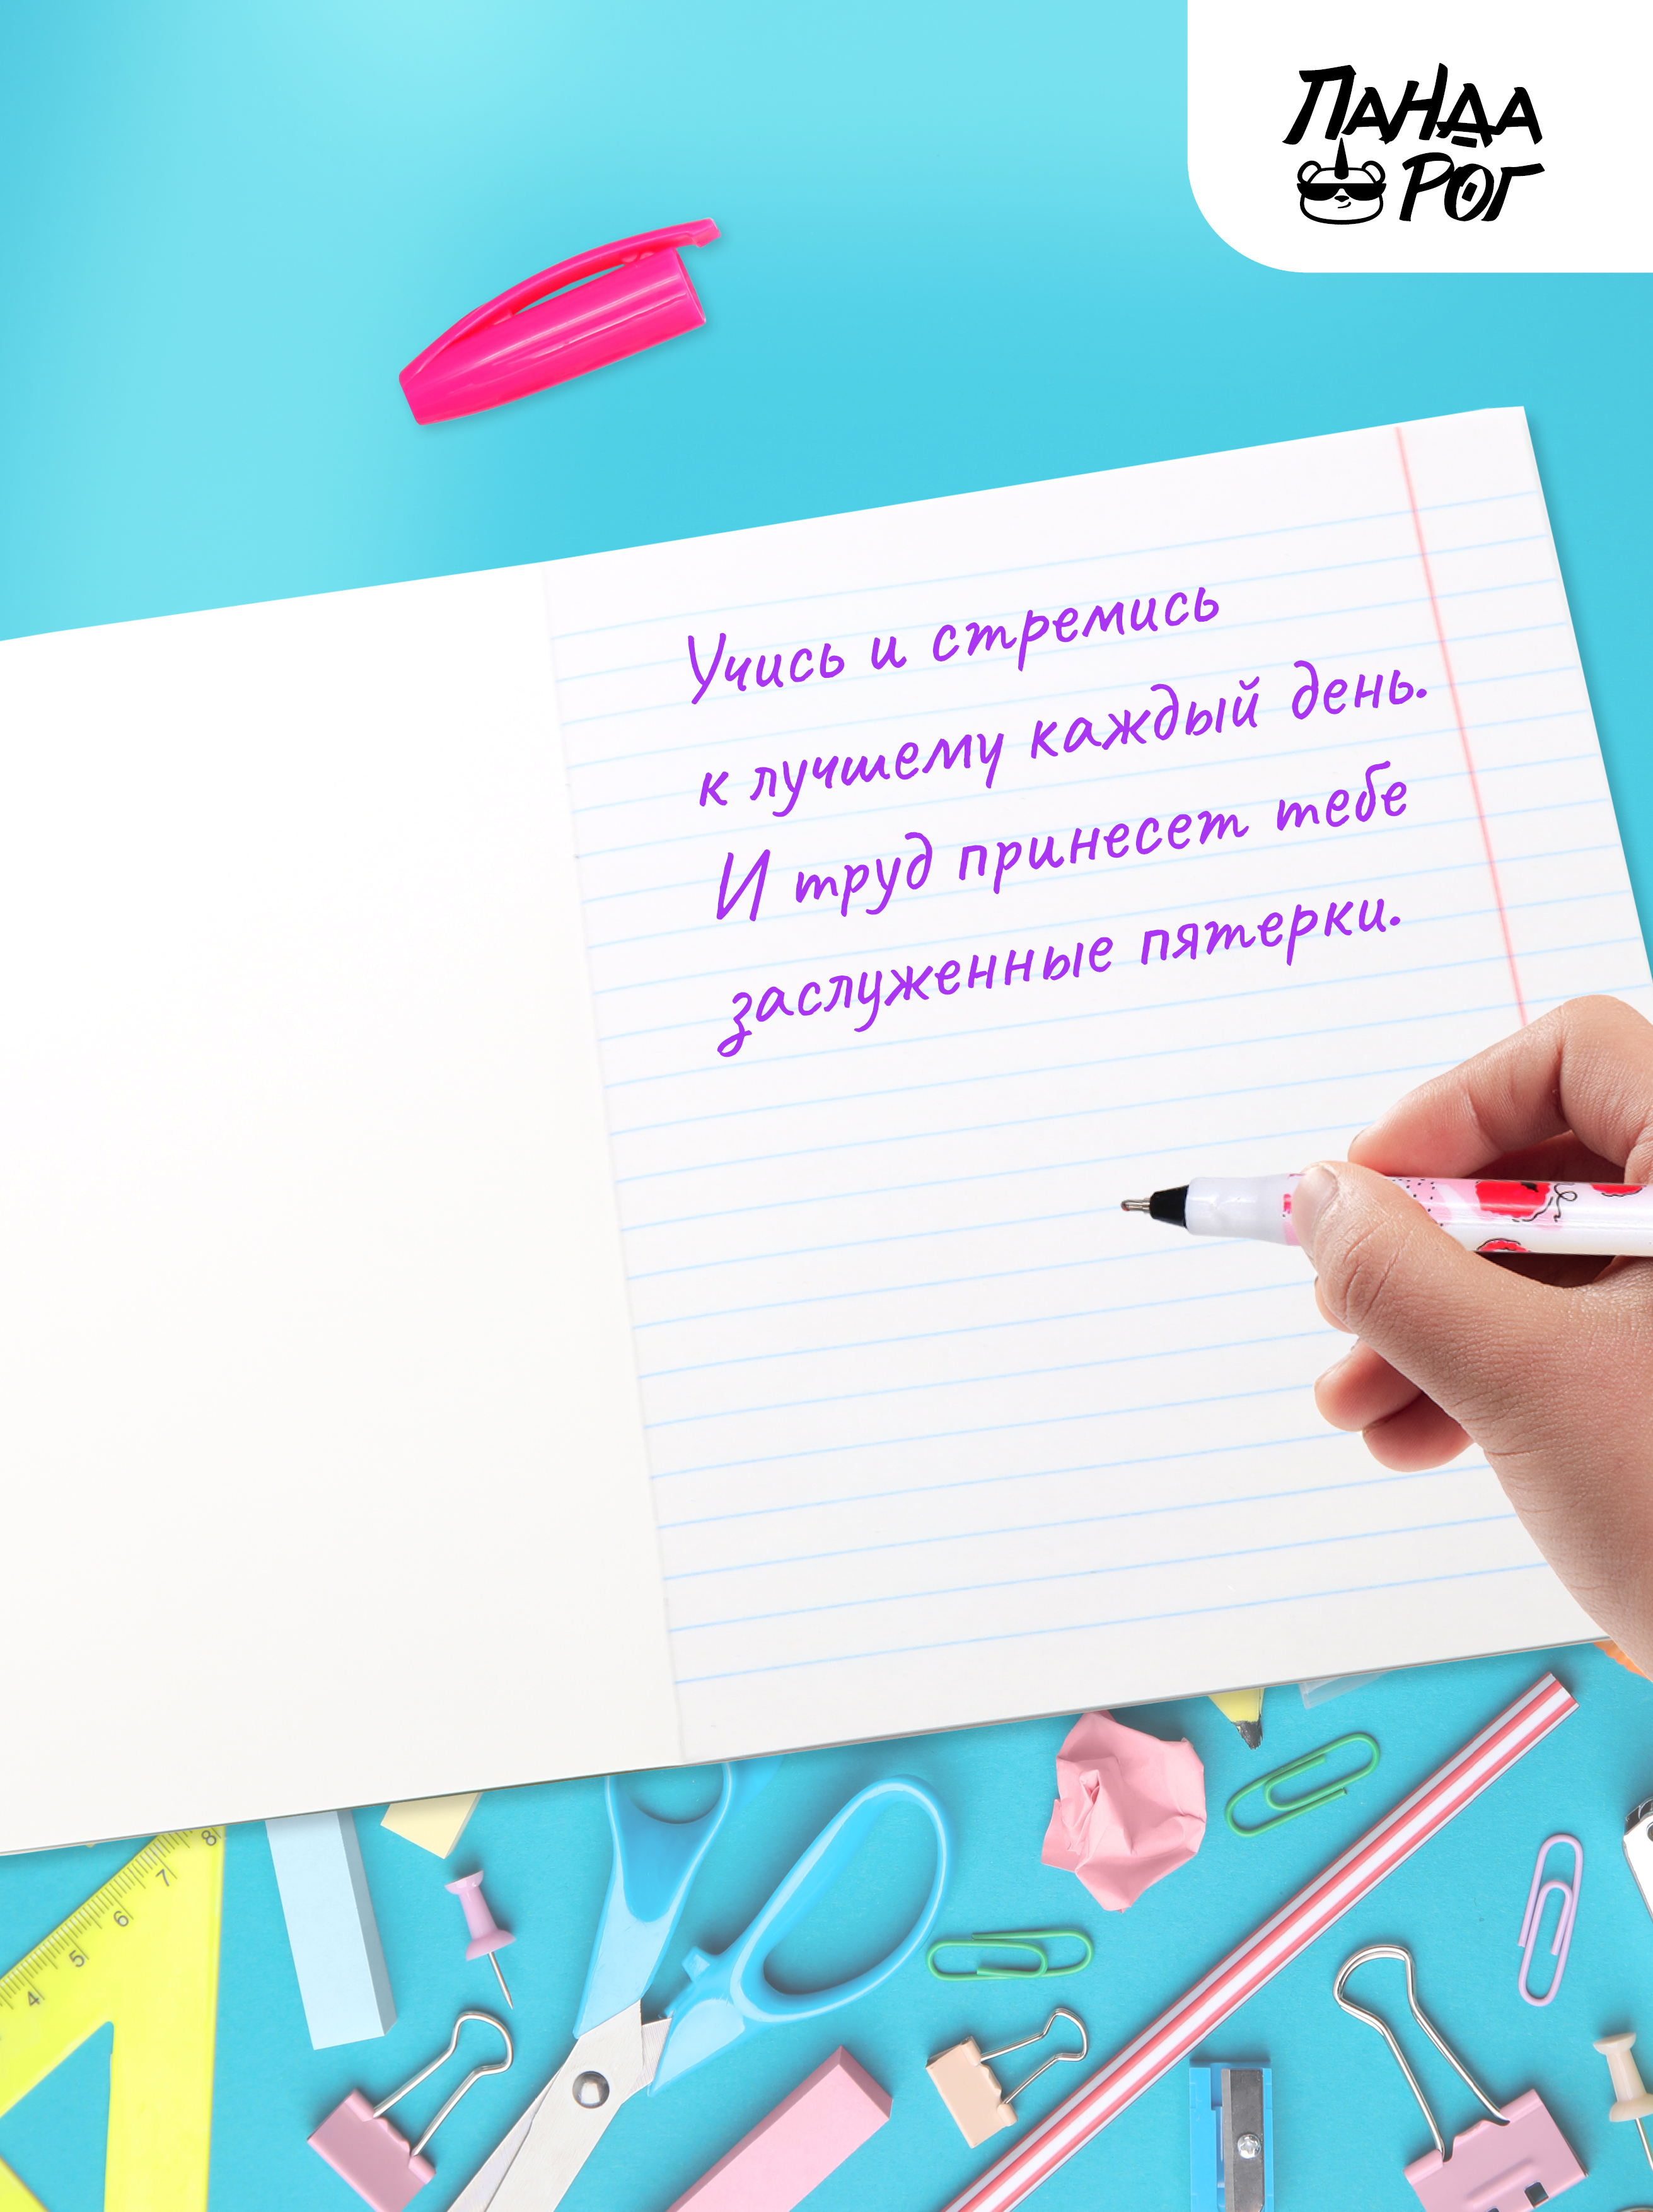 ПАНДА
РОГ
Учись и стремись
к лучшему каждый день.
И труд принесет тебе
заслуженные пятерки.
8
7
6
5
4